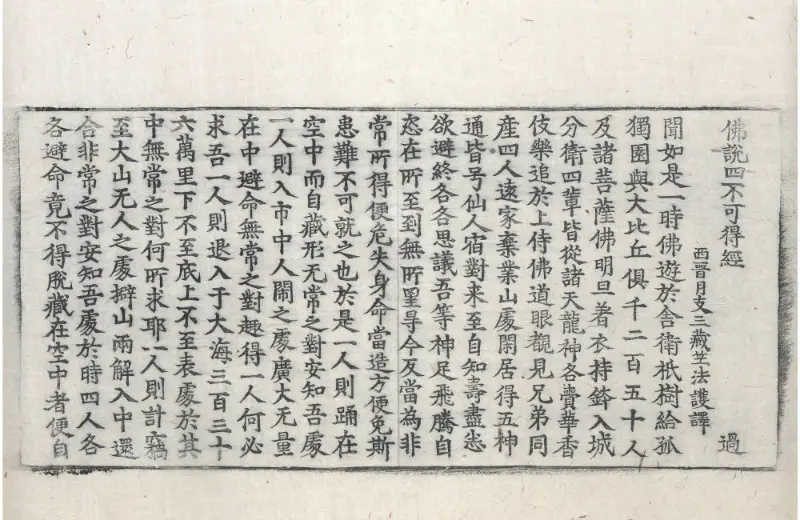 佛說四不可得經　過
西晋月支三藏竺法護譯
聞如是一時佛遊於舍衛祇樹給孤
獨園與大比丘俱千二百五十人
及諸菩薩佛明旦着衣持鉢入城
分衛四輩皆從諸天龍神各賫華香
伎樂追於上侍佛道眼觀見兄弟同
産四人遠家棄業山處閑居得五神
通皆号仙人宿對来至自知壽盡悉
欲避終各各思議吾等神足飛騰自
恣在所至到無所罣㝵今反當為非
常所得便危失身命當造方便免斯
患難不可就之也於是一人則踊在
空中而自藏形无常之對安知吾處
一人則入市中人閙之處廣大无量
在中避命無常之對趣得一人何必
求吾一人則退入于大海三百三十
六萬里下不至底上不至表處於其
中無常之對何所求耶一人則計竊
至大山无人之處擗山兩解入中還
合非常之對安知吾處於時四人各
各避命竟不得脫藏在空中者便自